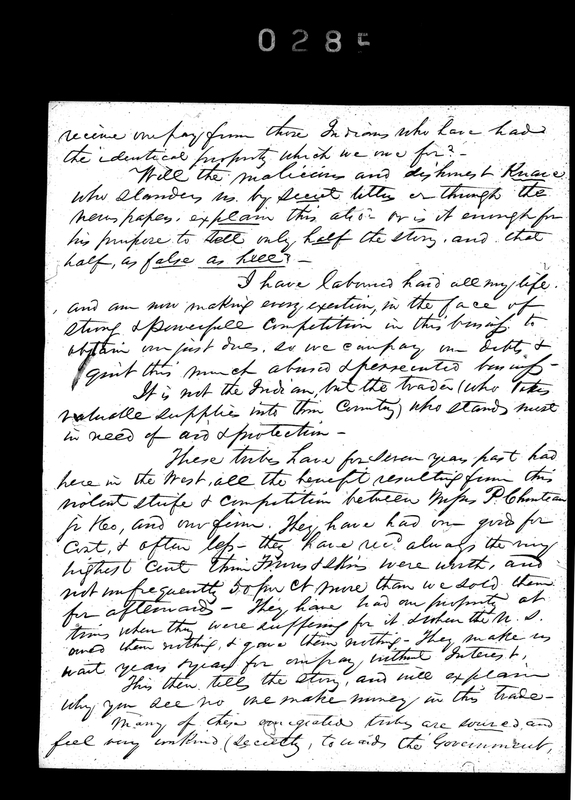 0285
receive our pay from those Indians who have had
the identical property which we owe for? —
Will the malicious and dishonest Knave
who slanders us, by secret letters or through the
newspapers, explain this also — or is it enough for
his purpose to tell only half the story, and that
half, as false as hell? —
I have laboured hard all my life,
and am now making every exertion, in the face of
strong & powerfull competition in this business to
obtain our just dues, so we can pay our debts, &
quit this much abused & persecuted business —
It is not the Indian, but the trader (who takes
valuable supplies into their Country) who stands most
in need of aid & protection —
These tribes have for seven years past had
here in the West, all the benefit resulting from this
violent strife & competition between Messrs P. Chouteau
Jr &Co, and our firm. They have had our goods for
Cost, & often less — they have rec'd always the very
highest cent their Furs & skins were worth, and
not unfrequently 50 per ct more than we sold them
for afterwards — They have had our property at
times when they were suffering for it, & when the U. S.
owed them nothing, & gave them nothing — They make us
wait years & years for our pay without Interest,
This then, tells the story, and will explain
why you see no one make money in this trade —
Many of these emigrated tribes are soured and
feel very unkind (secretly, towards the Government,